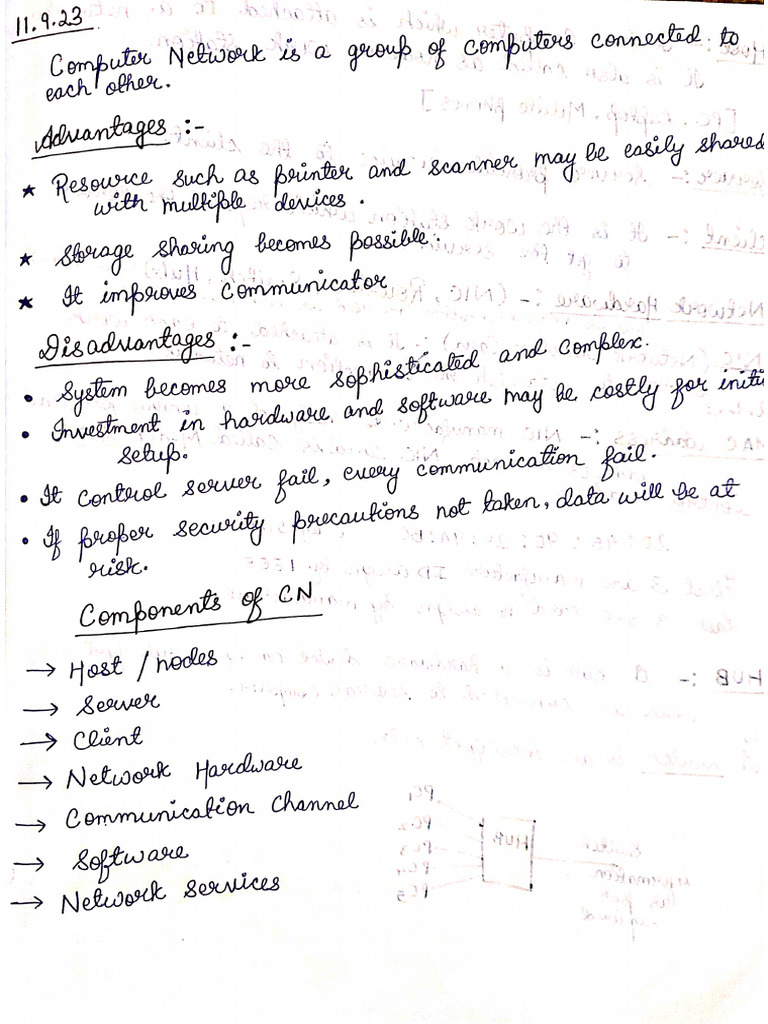 11.9.23
Computer Network is a group of computers connected to
each other.
Advantages :-
★ Resource such as printer and scanner may be easily shared
with multiple devices.
★ Storage sharing becomes possible.
★ It improves Communicator
Disadvantages :-
• System becomes more sophisticated and complex.
• Investment in hardware and software may be costly for initi
setup.
• It control server fail, every communication fail.
• If proper security precautions not taken, data will be at
risk.
Components of CN
→ Host / nodes
→ Server
→ Client
→ Network Hardware
→ Communication Channel
→ Software
→ Network Services